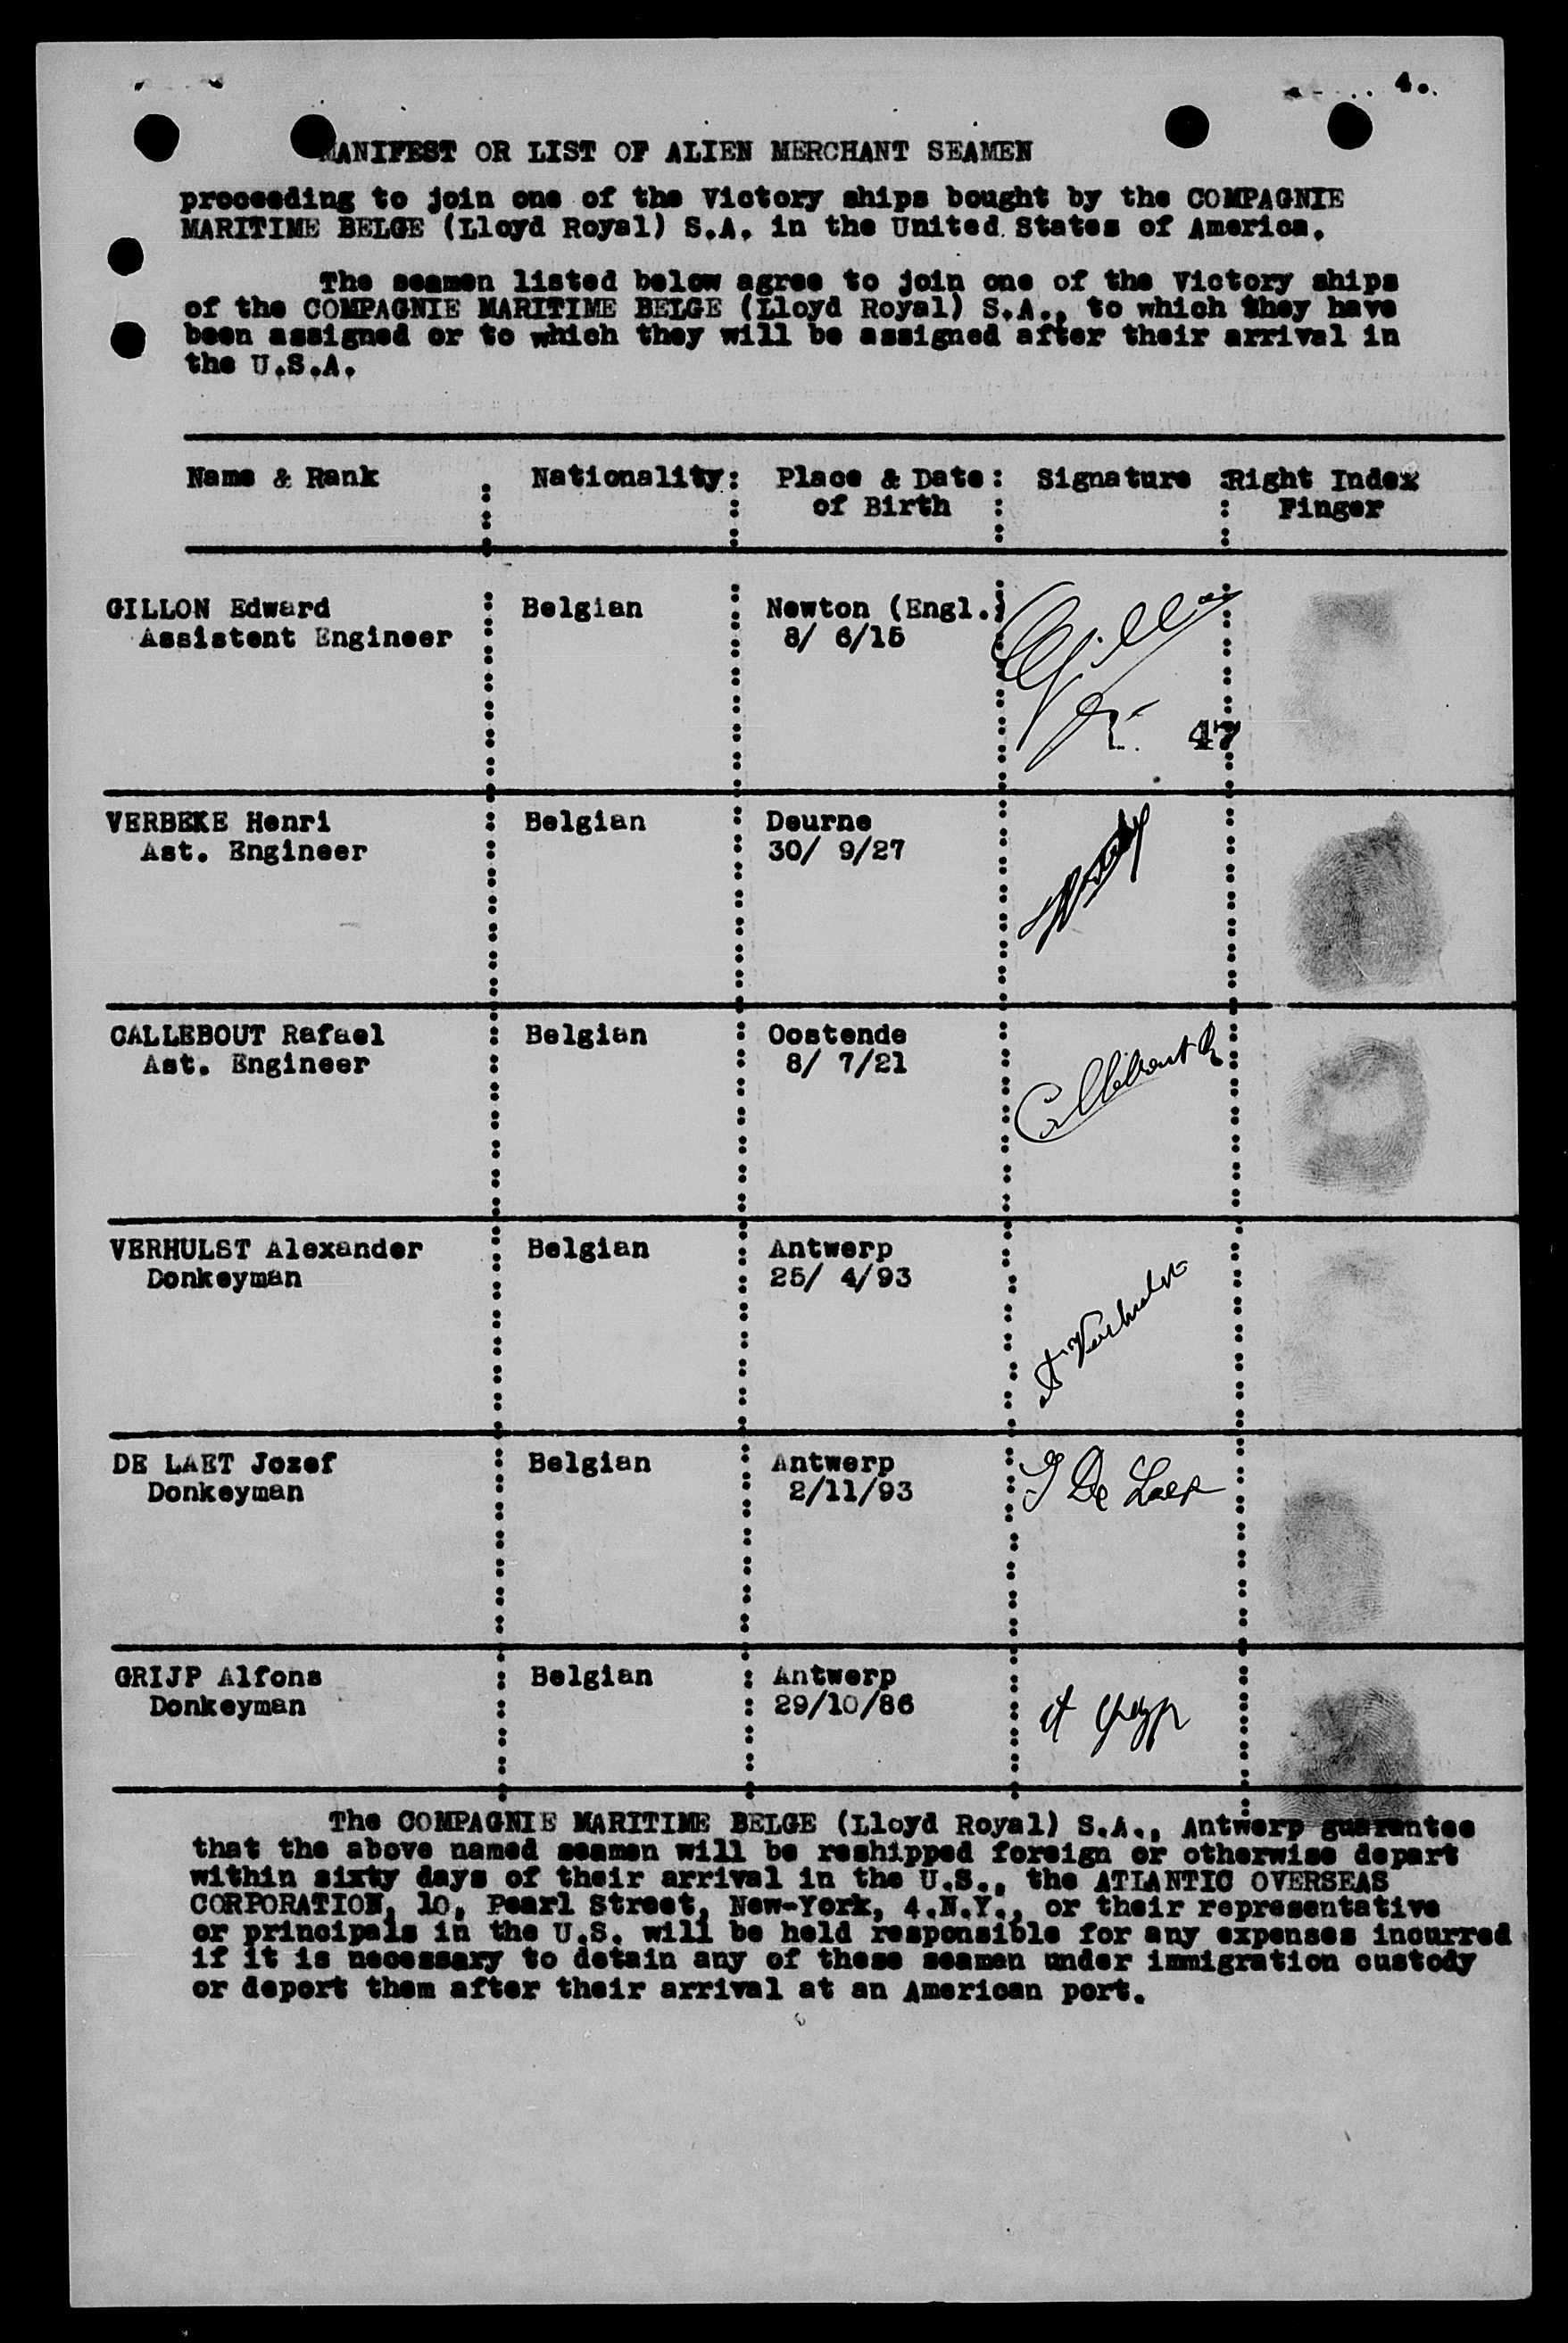 4.
MANIFEST OR LIST OF ALIEN MERCHANT SEAMEN
proceeding to join one of the Victory ships bought by the COMPAGNIE
MARITIME BELGE (Lloyd Royal) S.A. in the United States of America.
The seamen listed below agree to join one of the Victory ships
of the COMPAGNIE MARITIME BELGE (Lloyd Royal) S.A., to which they have
been assigned or to which they will be assigned after their arrival in
the U.S.A.
Name & Rank : Nationality : Place & Date : Signature : Right Index
of Birth : Finger
GILLON Edward Belgian Newton (Engl.)
Assistent Engineer 8/ 6/15
47
VERBEKE Henri Belgian Deurne
Ast. Engineer 30/ 9/27
CALLEBOUT Rafael Belgian Oostende
Ast. Engineer 8/ 7/21
Callebout R
VERHULST Alexander Belgian Antwerp
Donkeyman 25/ 4/93
A Verhulst
DE LAET Jozef Belgian Antwerp
Donkeyman 2/11/93
J De Laet
GRIJP Alfons Belgian Antwerp
Donkeyman 29/10/86
A Gryp
The COMPAGNIE MARITIME BELGE (Lloyd Royal) S.A., Antwerp guarantee
that the above named seamen will be reshipped foreign or otherwise depart
within sixty days of their arrival in the U.S., the ATLANTIC OVERSEAS
CORPORATION, 10, Pearl Street, New-York, 4.N.Y., or their representative
or principals in the U.S. will be held responsible for any expenses incurred
if it is necessary to detain any of these seamen under immigration custody
or deport them after their arrival at an American port.